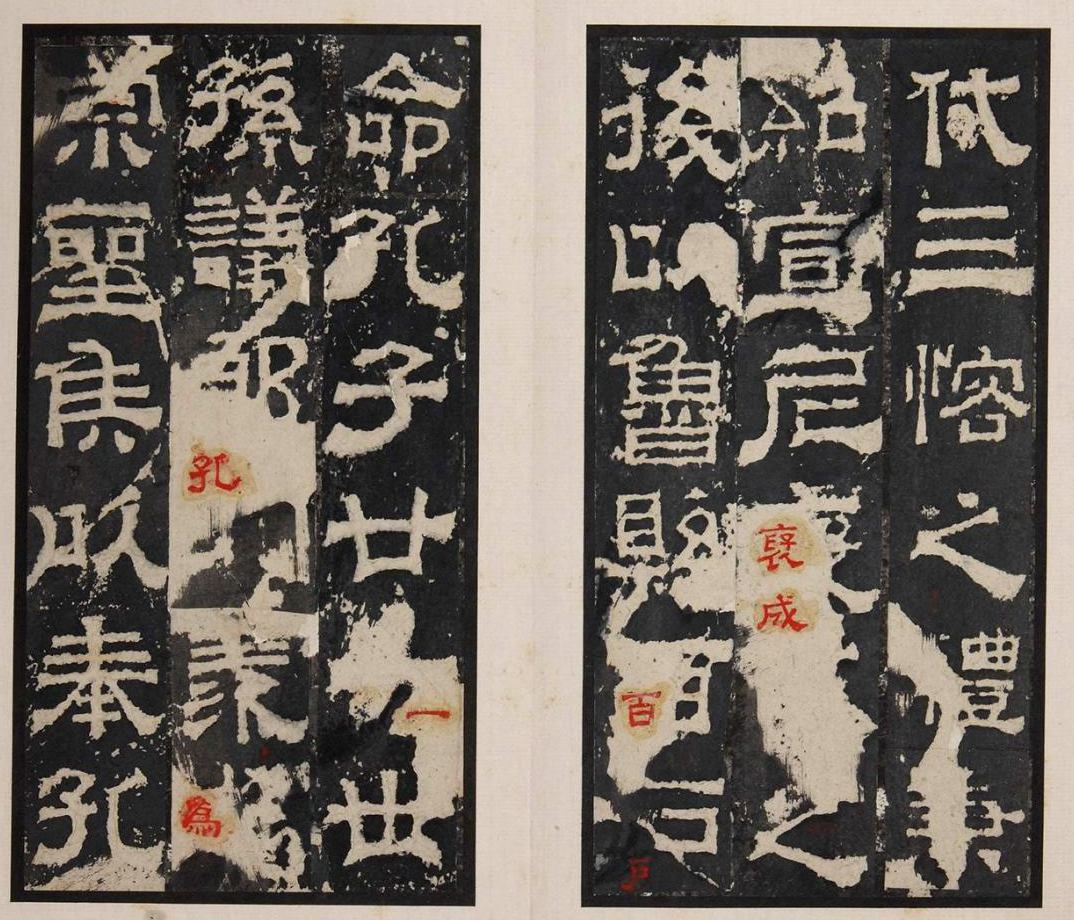 代三恪之禮兼
紹宣尼褒成之
後以魯縣百戶
命孔子廿一世
孫議郎孔羨為
宗聖侯以奉孔